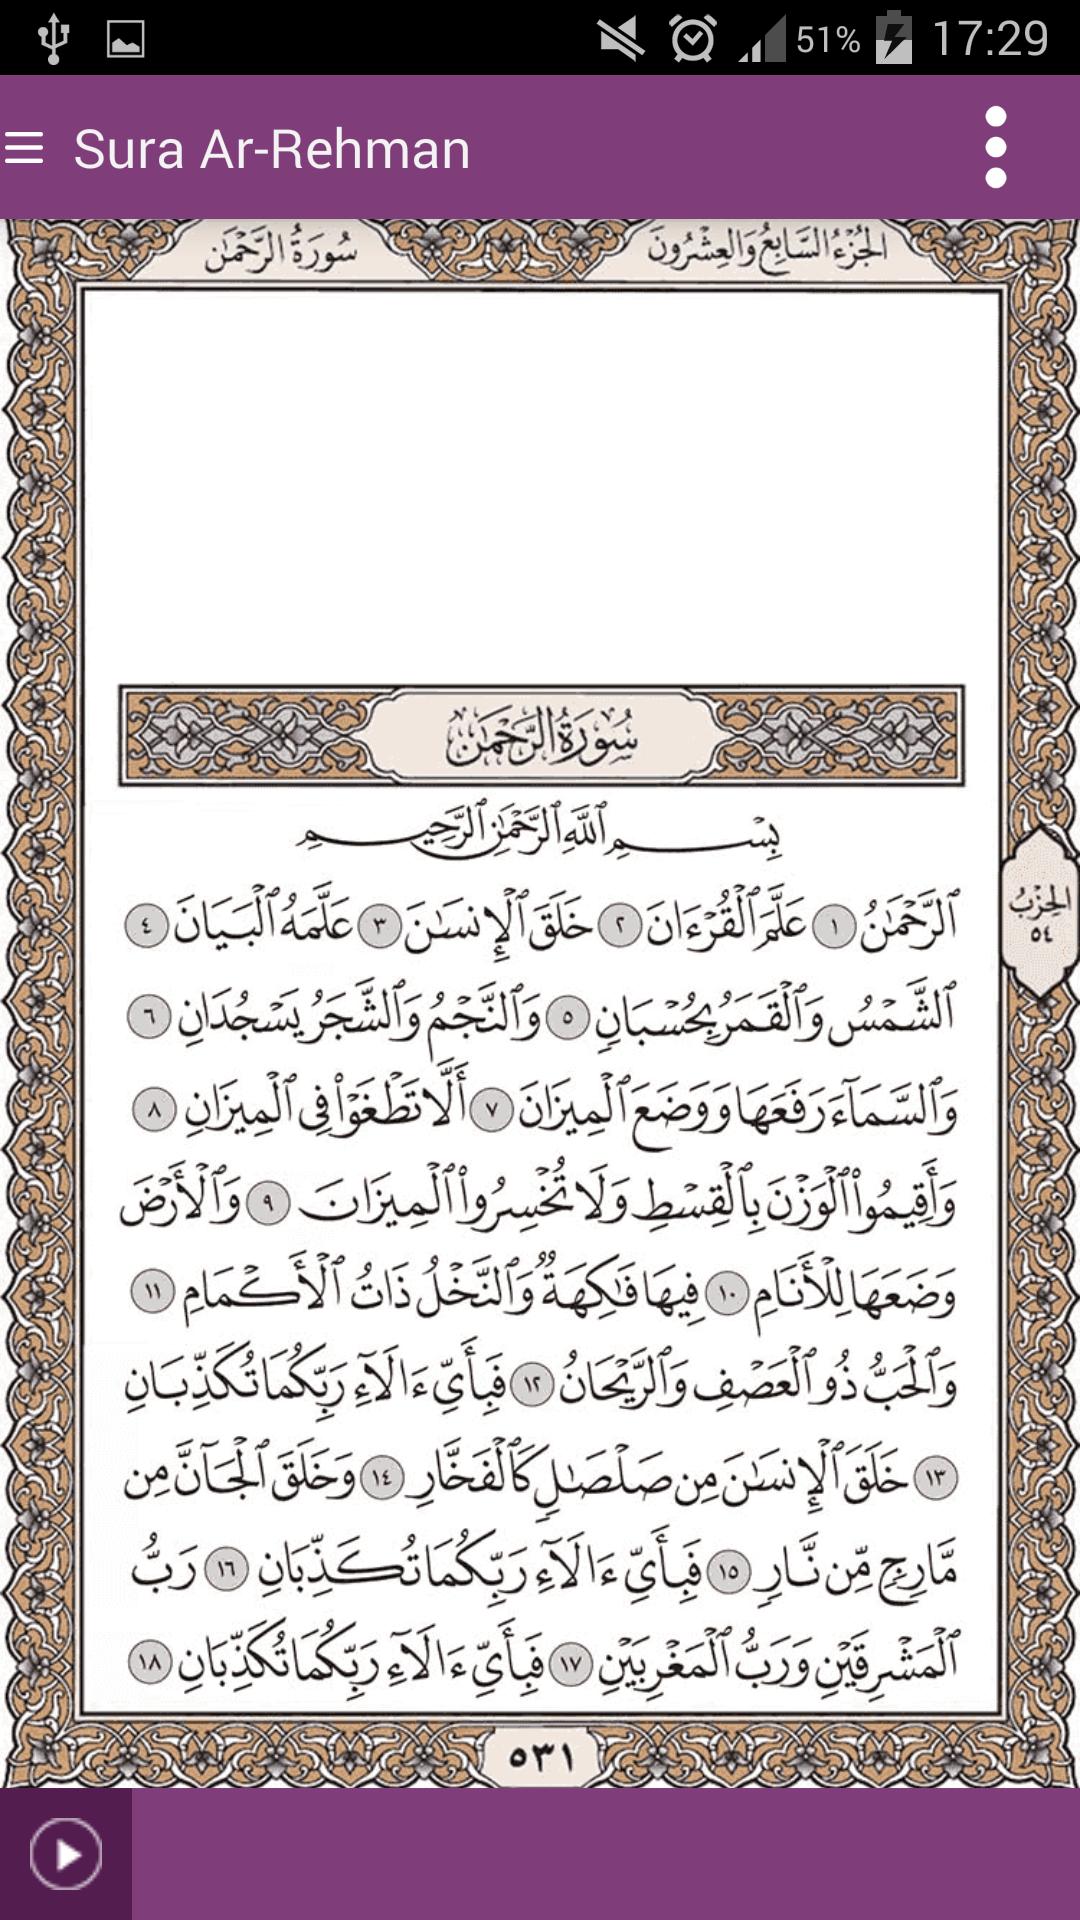 51% 17:29
Sura Ar-Rehman
سُورَةُ الرَّحْمَٰن الجُزْءُ السَّابِعُ وَالعِشْرُونَ
سُورَةُ الرَّحْمَٰن
بِسْمِ ٱللَّهِ ٱلرَّحْمَٰنِ ٱلرَّحِيمِ
ٱلرَّحْمَٰنُ ١ عَلَّمَ ٱلْقُرْءَانَ ٢ خَلَقَ ٱلْإِنسَٰنَ ٣ عَلَّمَهُ ٱلْبَيَانَ ٤
الحِزْبُ
٥٤
ٱلشَّمْسُ وَٱلْقَمَرُ بِحُسْبَانٍ ٥ وَٱلنَّجْمُ وَٱلشَّجَرُ يَسْجُدَانِ ٦
وَٱلسَّمَآءَ رَفَعَهَا وَوَضَعَ ٱلْمِيزَانَ ٧ أَلَّا تَطْغَوْا۟ فِى ٱلْمِيزَانِ ٨
وَأَقِيمُوا۟ ٱلْوَزْنَ بِٱلْقِسْطِ وَلَا تُخْسِرُوا۟ ٱلْمِيزَانَ ٩ وَٱلْأَرْضَ
وَضَعَهَا لِلْأَنَامِ ١٠ فِيهَا فَٰكِهَةٌ وَٱلنَّخْلُ ذَاتُ ٱلْأَكْمَامِ ١١
وَٱلْحَبُّ ذُو ٱلْعَصْفِ وَٱلرَّيْحَانُ ١٢ فَبِأَىِّ ءَالَآءِ رَبِّكُمَا تُكَذِّبَانِ
١٣ خَلَقَ ٱلْإِنسَٰنَ مِن صَلْصَٰلٍ كَٱلْفَخَّارِ ١٤ وَخَلَقَ ٱلْجَآنَّ مِن
مَّارِجٍ مِّن نَّارٍ ١٥ فَبِأَىِّ ءَالَآءِ رَبِّكُمَا تُكَذِّبَانِ ١٦ رَبُّ
ٱلْمَشْرِقَيْنِ وَرَبُّ ٱلْمَغْرِبَيْنِ ١٧ فَبِأَىِّ ءَالَآءِ رَبِّكُمَا تُكَذِّبَانِ ١٨
٥٣١